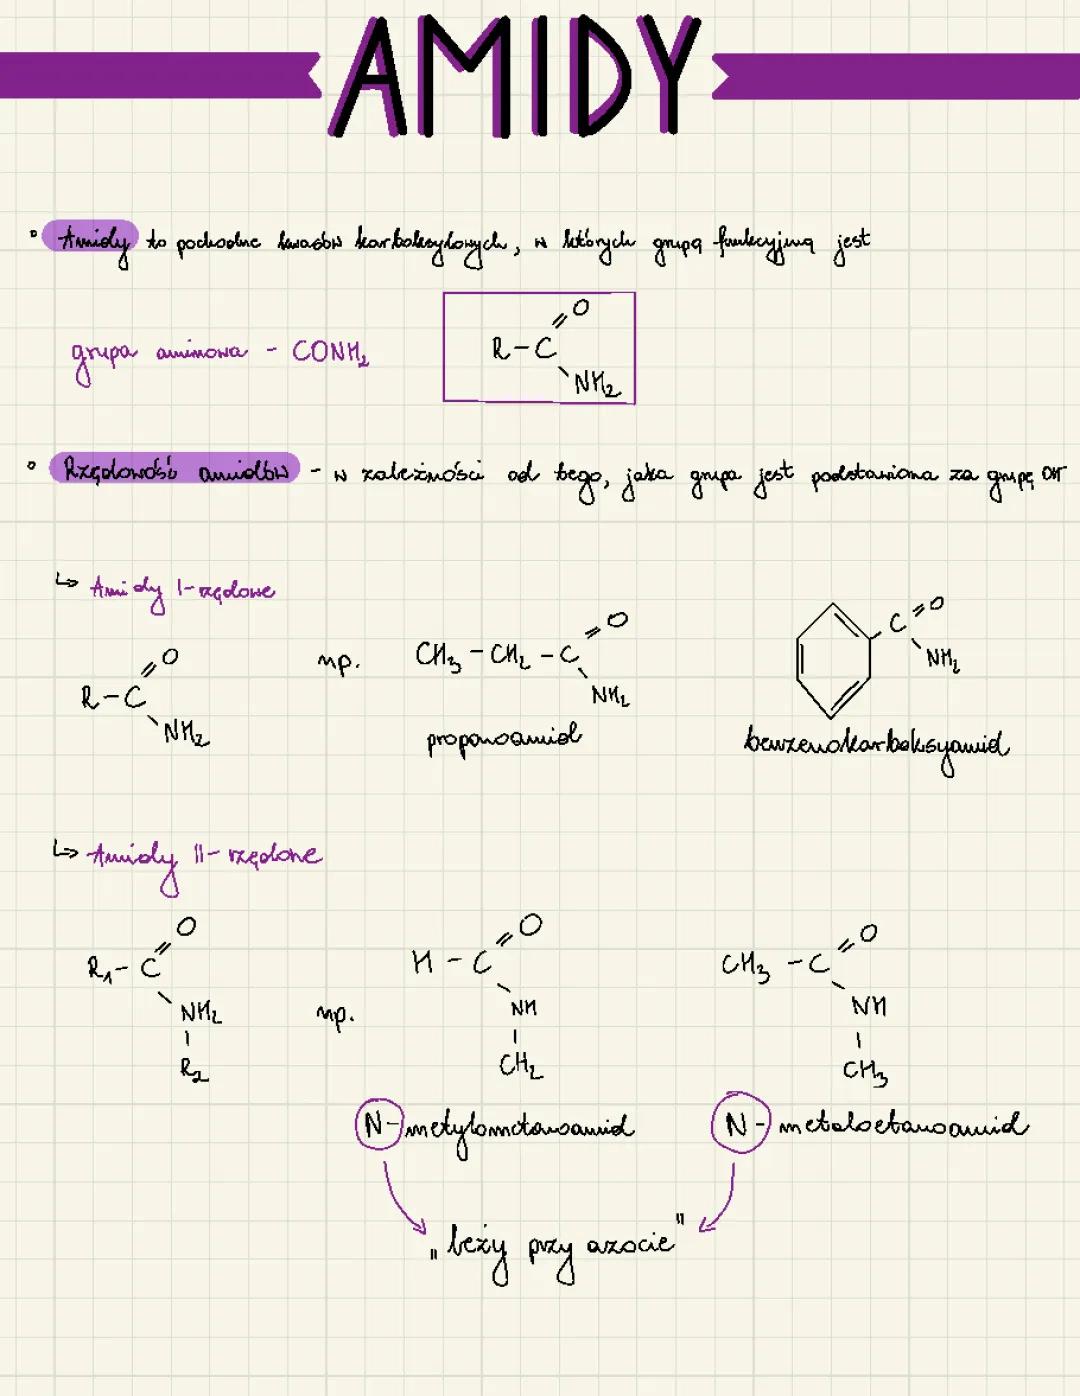 AMIDY
° Amidy to pochodne kwasów karboksylowych, w których grupą funkcyjną jest
grupa aminowa - CONH₂
O
R-C
NH₂
° Rzędowość amidów - w zależności od tego, jaka grupa jest podstawiona za grupę OH
↳ Amidy I-rzędowe
O
R-C
NH₂
np.
O
CH₃-CH₂-C
NH₂
propanoamid
O
C
NH₂
benzenokarboksyamid
↳ Amidy II-rzędowe
O
R₁-C
NH₂
R₂
np.
O
H-C
NH
CH₂
N-metylometanoamid
O
CH₃-C
NH
CH₃
N-metaloetanoamid
"leży przy azocie"